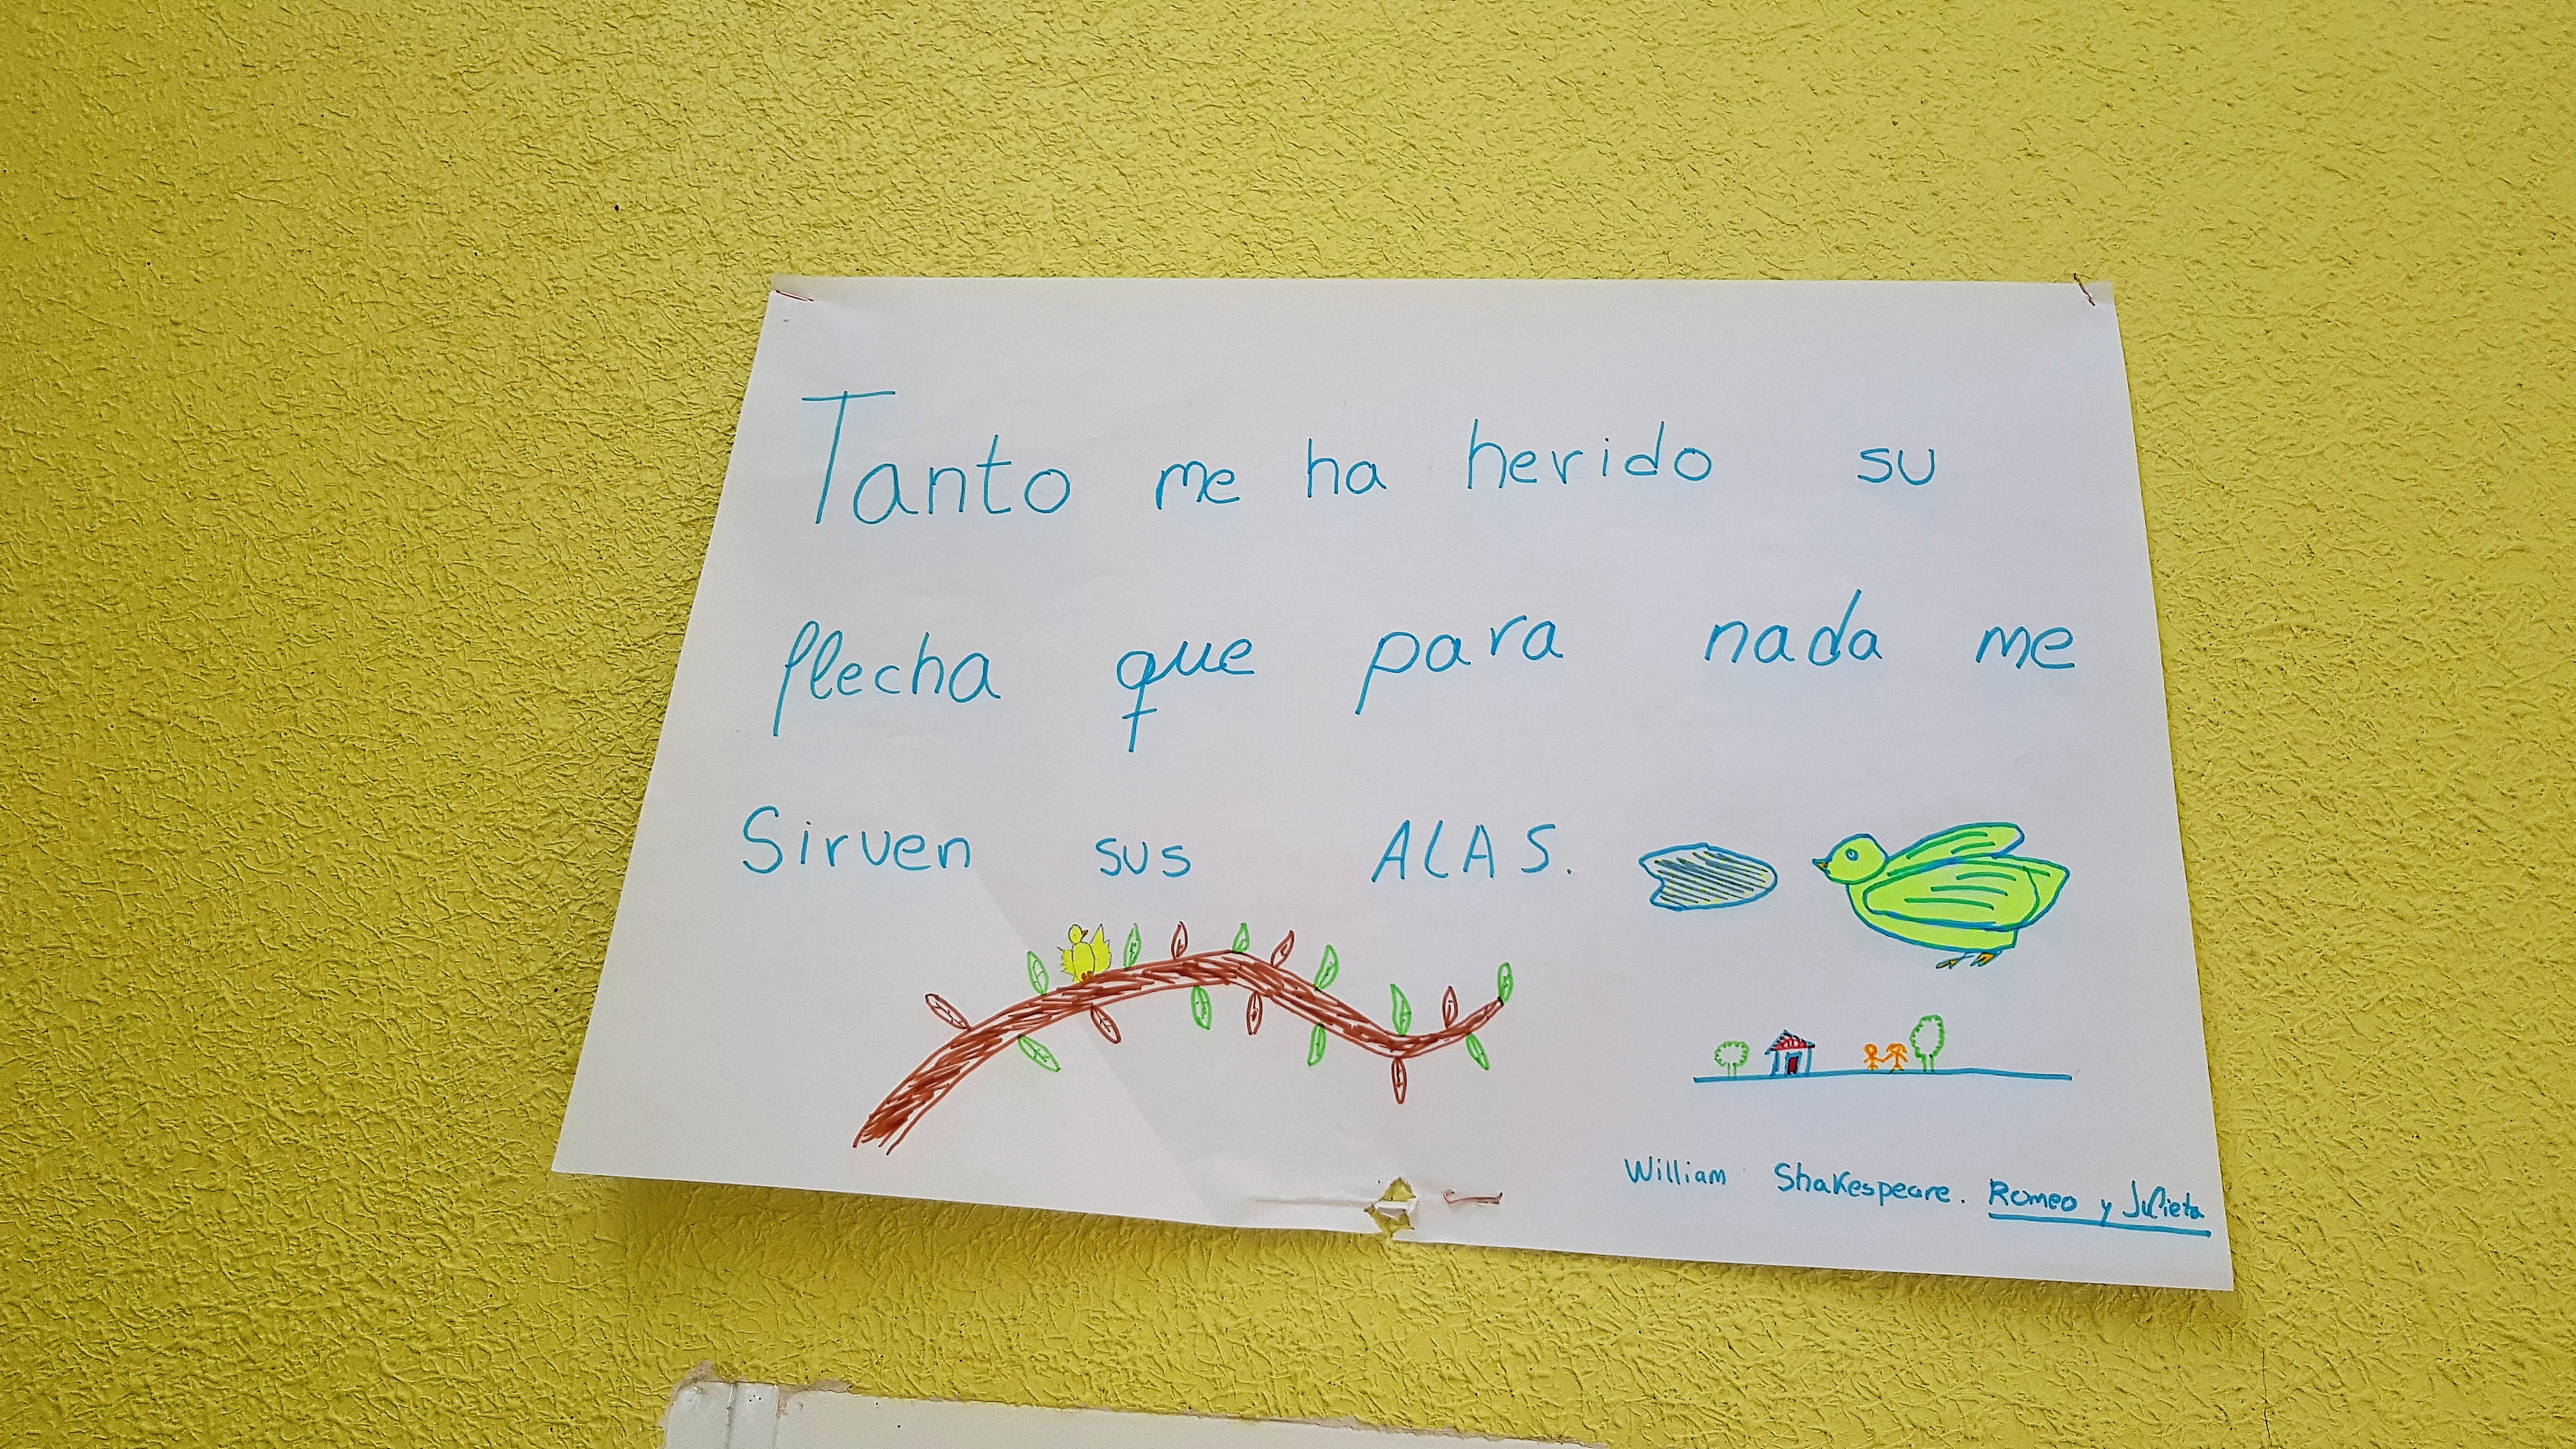 Tanto me ha herido su
flecha que para nada me
Sirven sus ALAS.
William Shakespeare. Romeo y Julieta